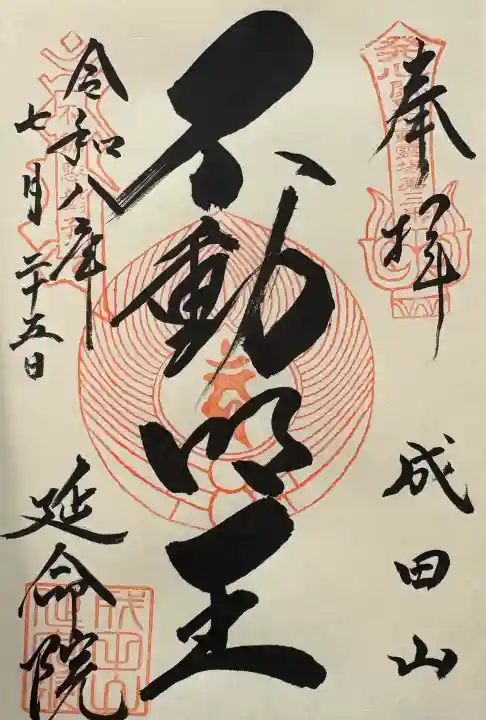 奉拝
成田山
不動明王
令和八年
七月二十五日
延命院